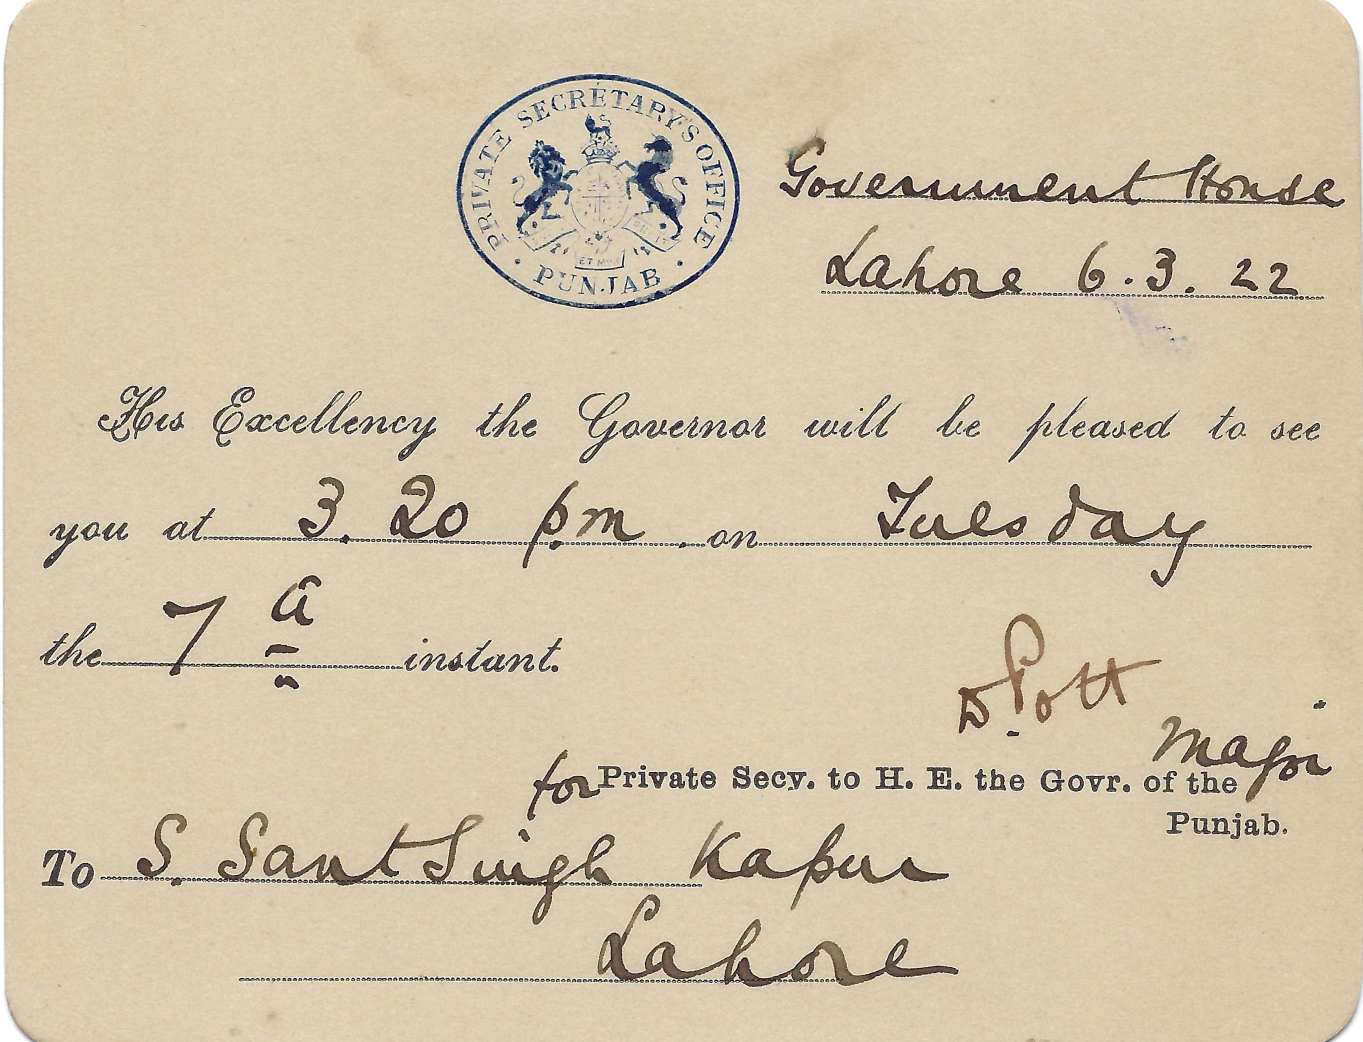 PRIVATE SECRETARY'S OFFICE
ET MON
PUNJAB
Government House
Lahore 6.3.22
His Excellency the Governor will be pleased to see
you at 3.20 p.m on Tuesday
the 7 instant.
D. Pott
Major
for Private Secy. to H. E. the Govr. of the
Punjab.
To S. Sant Singh Kapur
Lahore